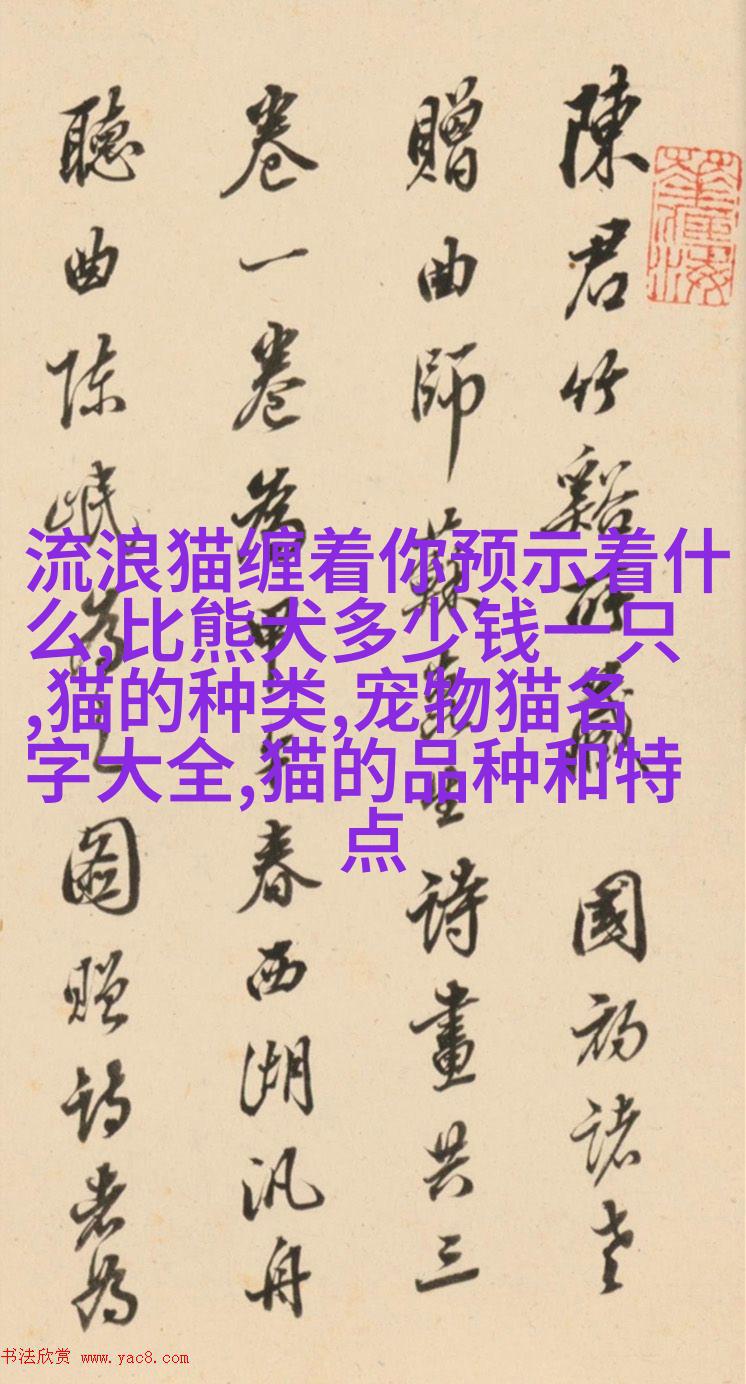 陳君竹谿所藏 國初諸老
贈曲師蘇崑生詩畫共三
卷一卷為甲午春西湖汎舟
聽曲陈岷為之圖贈詩者為
流浪猫缠着你预示着什
么,比熊犬多少钱一只
,猫的种类,宠物猫名
字大全,猫的品种和特
点
书法欣赏 www.yac8.com